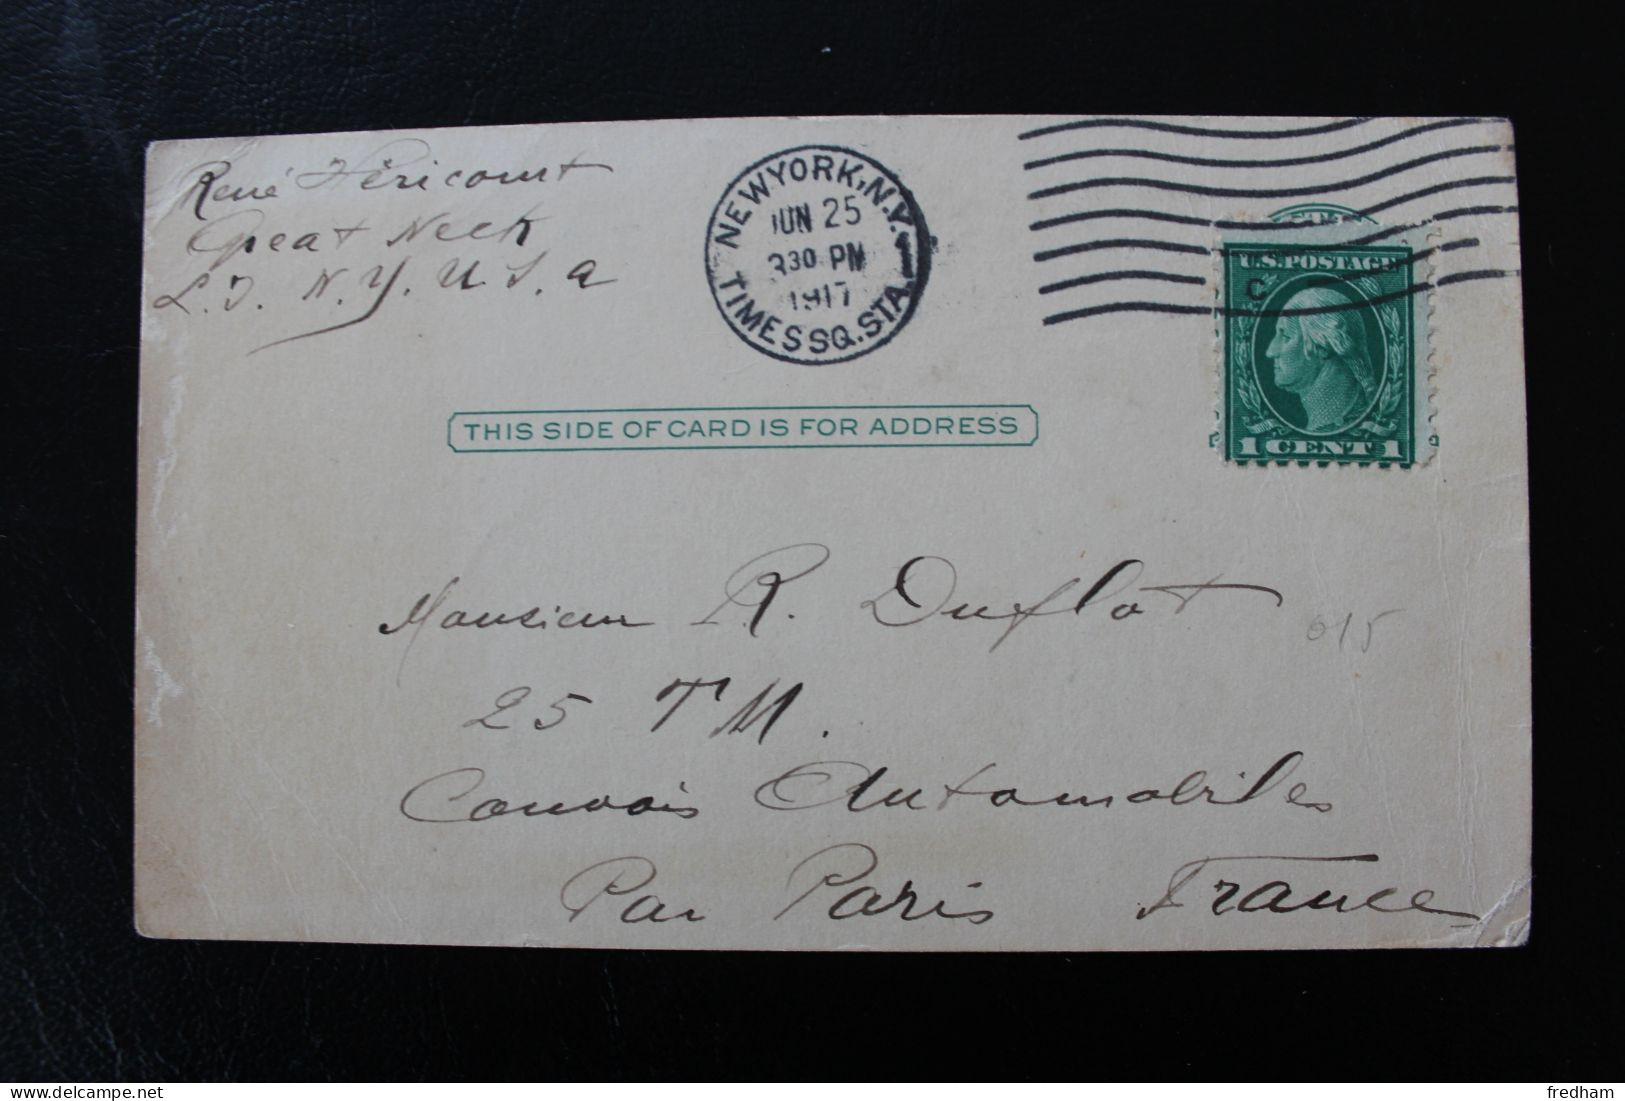 René Héricourt
Great Neck
L.I. N.Y. U.S.A
NEW YORK, N.Y. 1
JUN 25
330 PM
1917
TIMES SQ. STA.
U.S. POSTAGE
C
1 CENT 1
THIS SIDE OF CARD IS FOR ADDRESS
Monsieur R. Duflot
015
25 TM.
Convois Automobiles
Par Paris France
delcampe.net
fredham